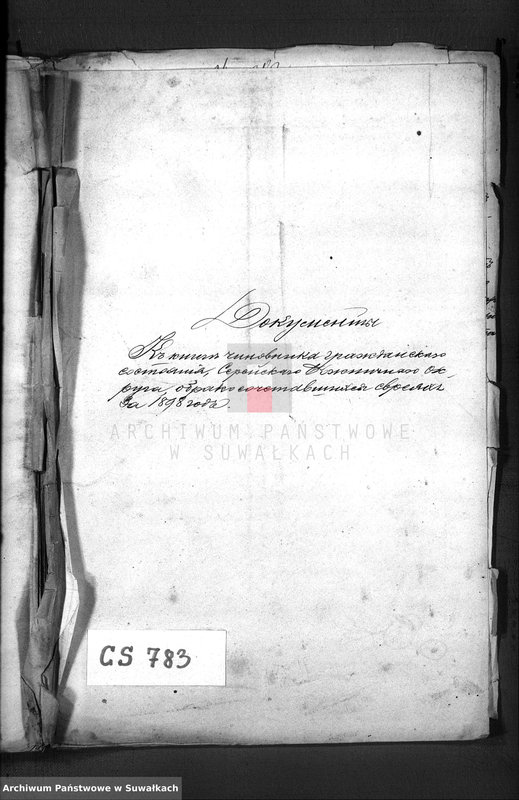 Документы
Къ книгѣ чиновника гражданскаго
состоянія, Серейскаго Божничнаго ок-
руга, бракосочетавшихся евреяхъ
за 1898 годъ.
ARCHIWUM PAŃSTWOWE
W SUWAŁKACH
CS 783
Archiwum Państwowe w Suwałkach